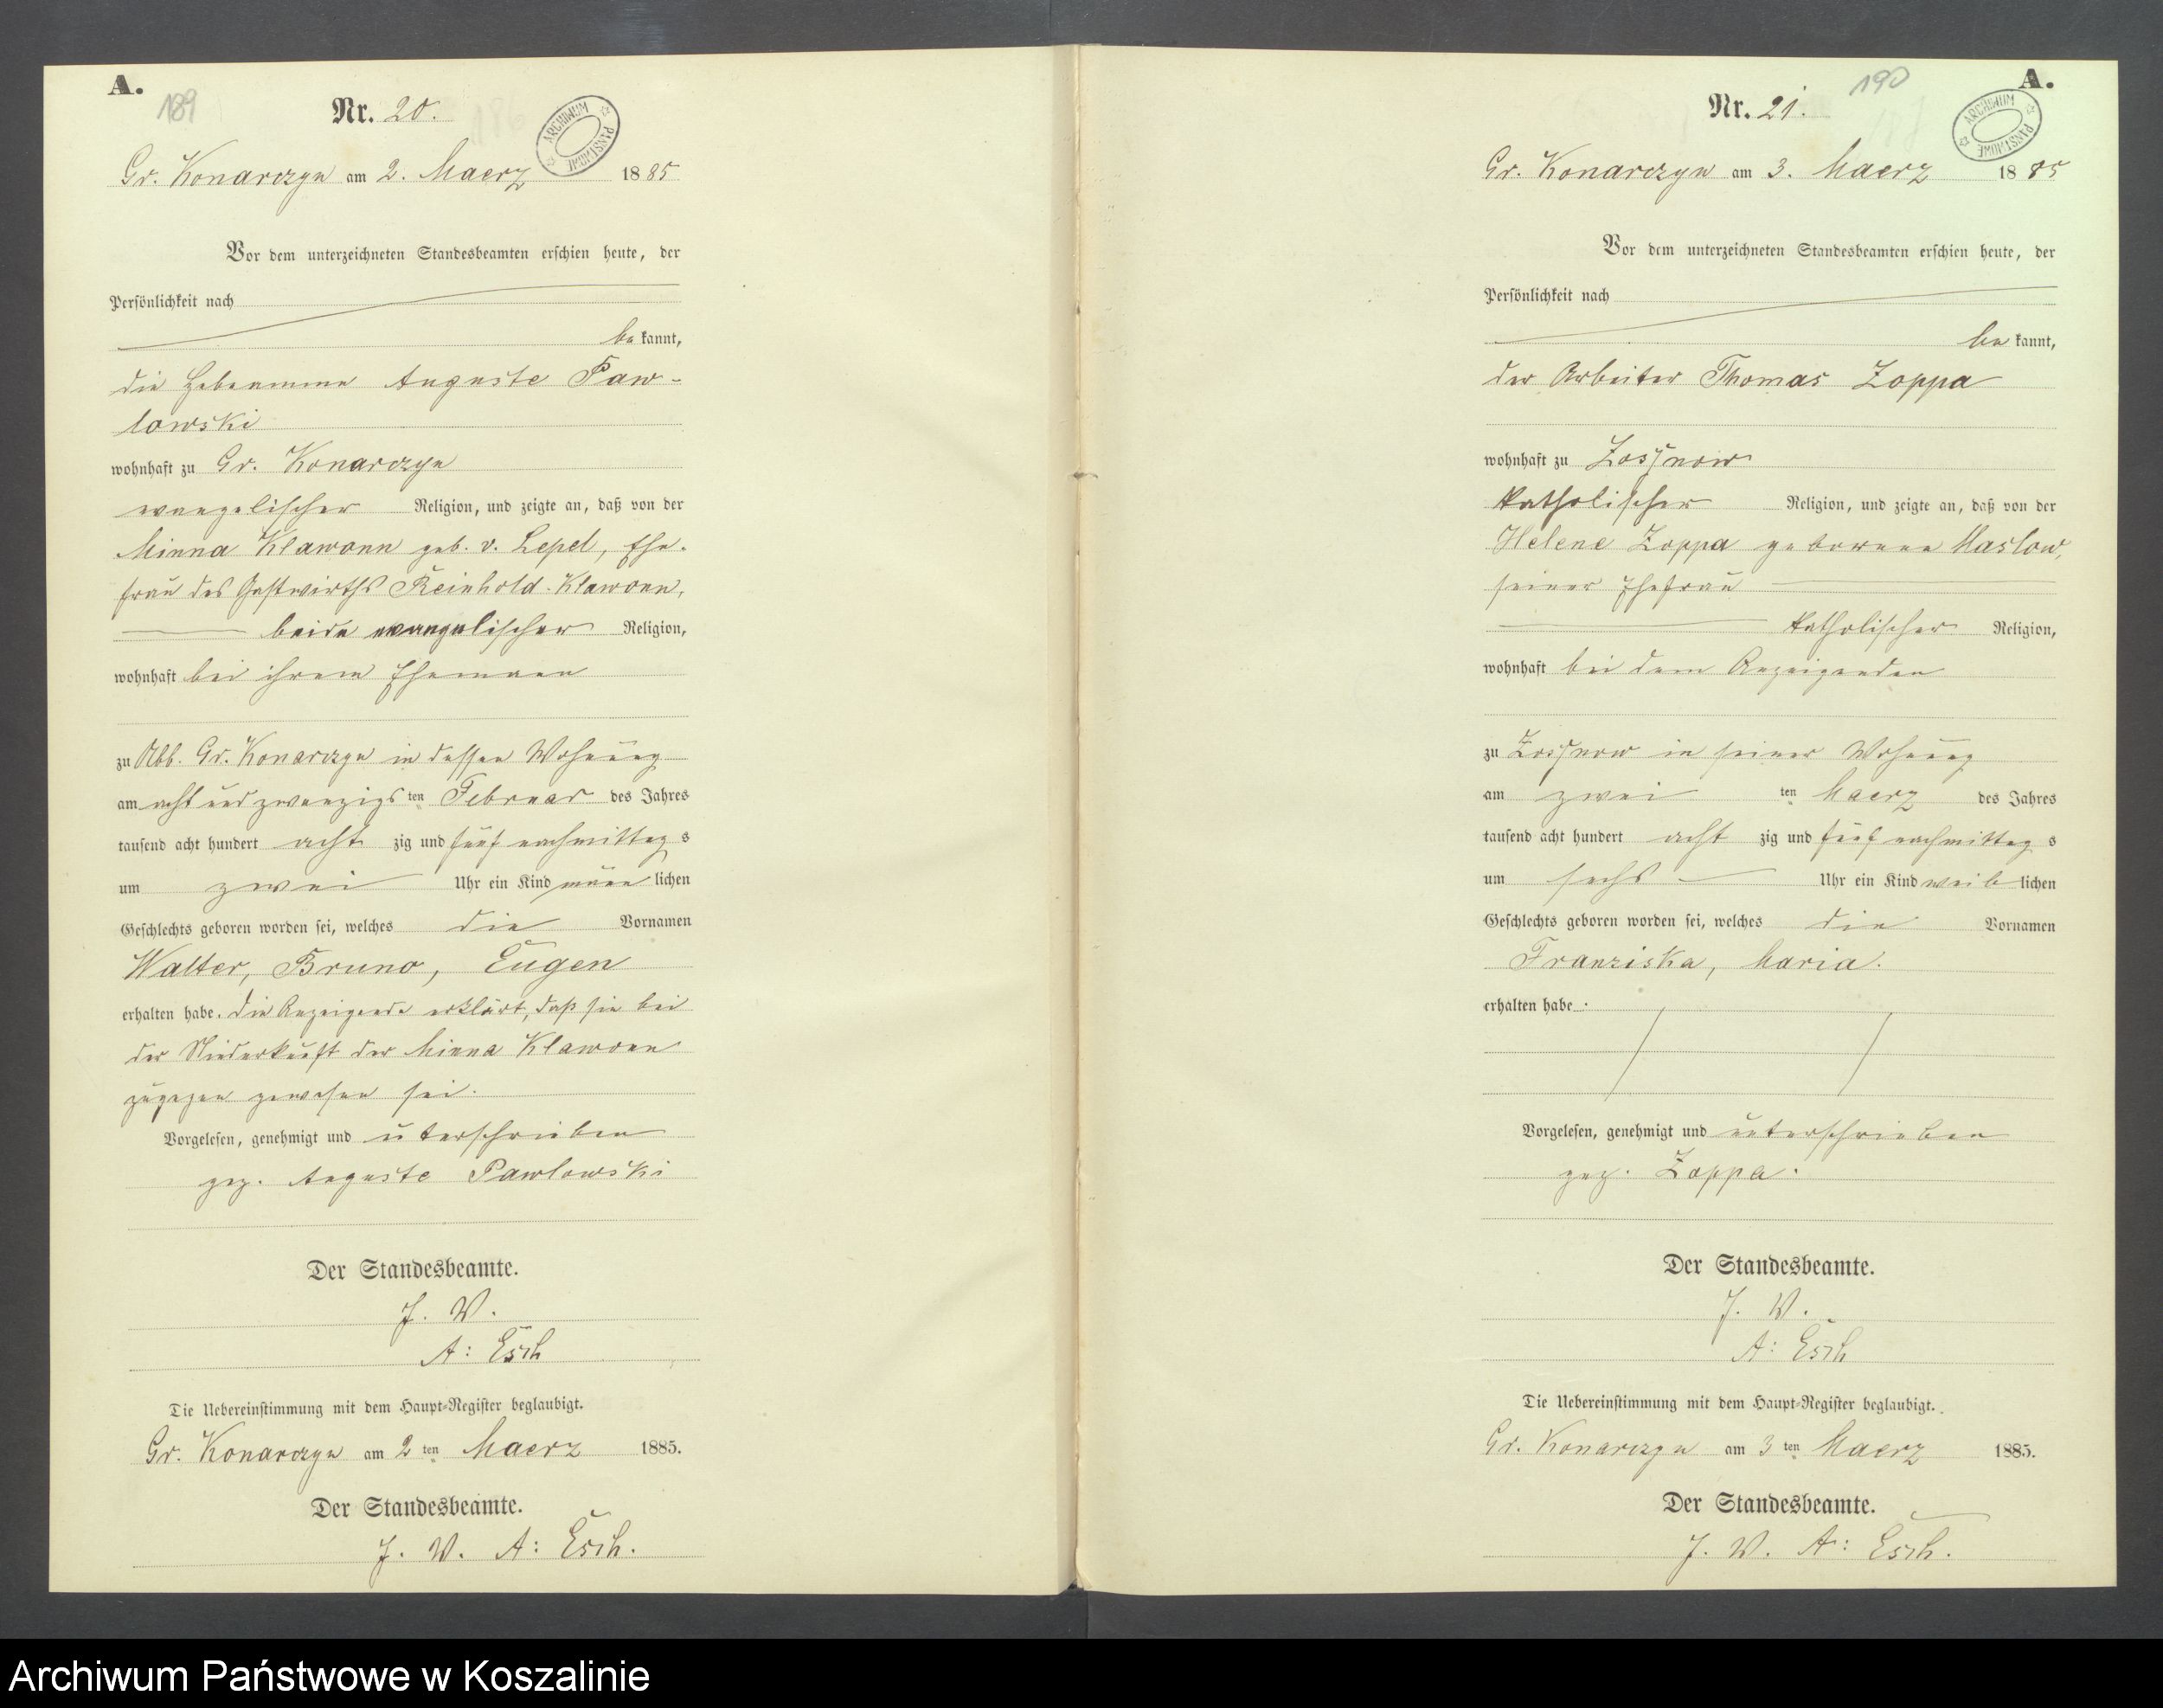 A.
189
Nr. 20.
ARCHIWUM PAŃSTWOWE
Gr. Konarczyn am 2. Maerz 1885
Vor dem unterzeichneten Standesbeamten erschien heute, der
Persönlichkeit nach
be kannt,
die Hebamme Auguste Paw-
lowski
wohnhaft zu Gr. Konarczyn
evangelischer Religion, und zeigte an, daß von der
Minna Klawonn geb. v. Lepel, Ehe-
frau des Gastwirths Reinhold Klawonn,
beide evangelischer Religion,
wohnhaft bei ihrem Ehemann
zu Abb. Gr. Konarczyn in dessen Wohnung
am acht und zwanzigs ten Februar des Jahres
tausend acht hundert acht zig und fünf nachmittag s
um zwei Uhr ein Kind männ lichen
Geschlechts geboren worden sei, welches die Vornamen
Walter, Bruno, Eugen
erhalten habe. die Anzeigende erklärt, daß sie bei
der Niederkunft der Minna Klawonn
zugegen gewesen sei.
Vorgelesen, genehmigt und unterschrieben
gez. Auguste Pawlowski
Der Standesbeamte.
J. V.
A: Esch
Die Uebereinstimmung mit dem Haupt-Register beglaubigt.
Gr. Konarczyn am 2 ten Maerz 1885.
Der Standesbeamte.
J. V. A: Esch.
190
A.
Nr. 21.
ARCHIWUM PAŃSTWOWE
Gr. Konarczyn am 3. Maerz 1885
Vor dem unterzeichneten Standesbeamten erschien heute, der
Persönlichkeit nach
be kannt,
der Arbeiter Thomas Zoppa
wohnhaft zu Zossnow
katholischer Religion, und zeigte an, daß von der
Helene Zoppa geborene Maslow,
seiner Ehefrau
katholischer Religion,
wohnhaft bei dem Anzeigenden
zu Zossnow in seiner Wohnung
am zwei ten Maerz des Jahres
tausend acht hundert acht zig und fünf nachmittag s
um sechs Uhr ein Kind weib lichen
Geschlechts geboren worden sei, welches die Vornamen
Franziska, Maria.
erhalten habe.
Vorgelesen, genehmigt und unterschrieben
gez. Zoppa.
Der Standesbeamte.
J. V.
A: Esch
Die Uebereinstimmung mit dem Haupt-Register beglaubigt.
Gr. Konarczyn am 3 ten Maerz 1885.
Der Standesbeamte.
J. V. A: Esch.
Archiwum Państwowe w Koszalinie